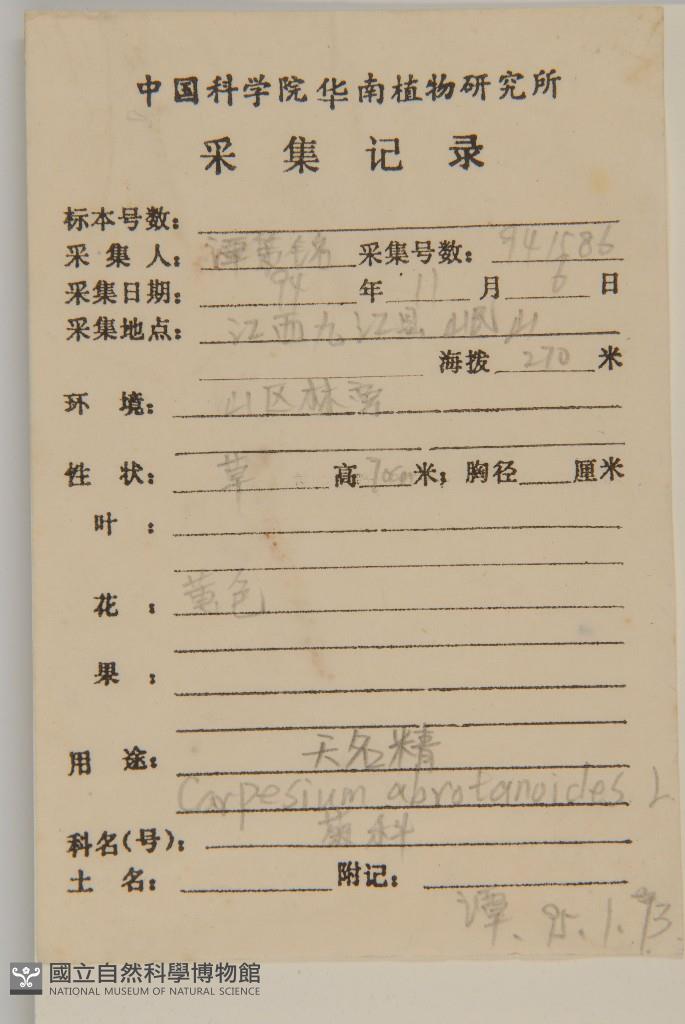 中国科学院华南植物研究所
采集记录
标本号数：
采集人：谭策锦 采集号数：941586
采集日期：94年11月6日
采集地点：江西九江县 岷山
海拨 270 米
环境：山区林旁
性状：草 高 70cm 米；胸径 厘米
叶：
花：黄色
果：
用途：天名精
Carpesium abrotanoides L
科名(号)：菊科
土名： 附记：
谭. 95.1.13
國立自然科學博物館
NATIONAL MUSEUM OF NATURAL SCIENCE